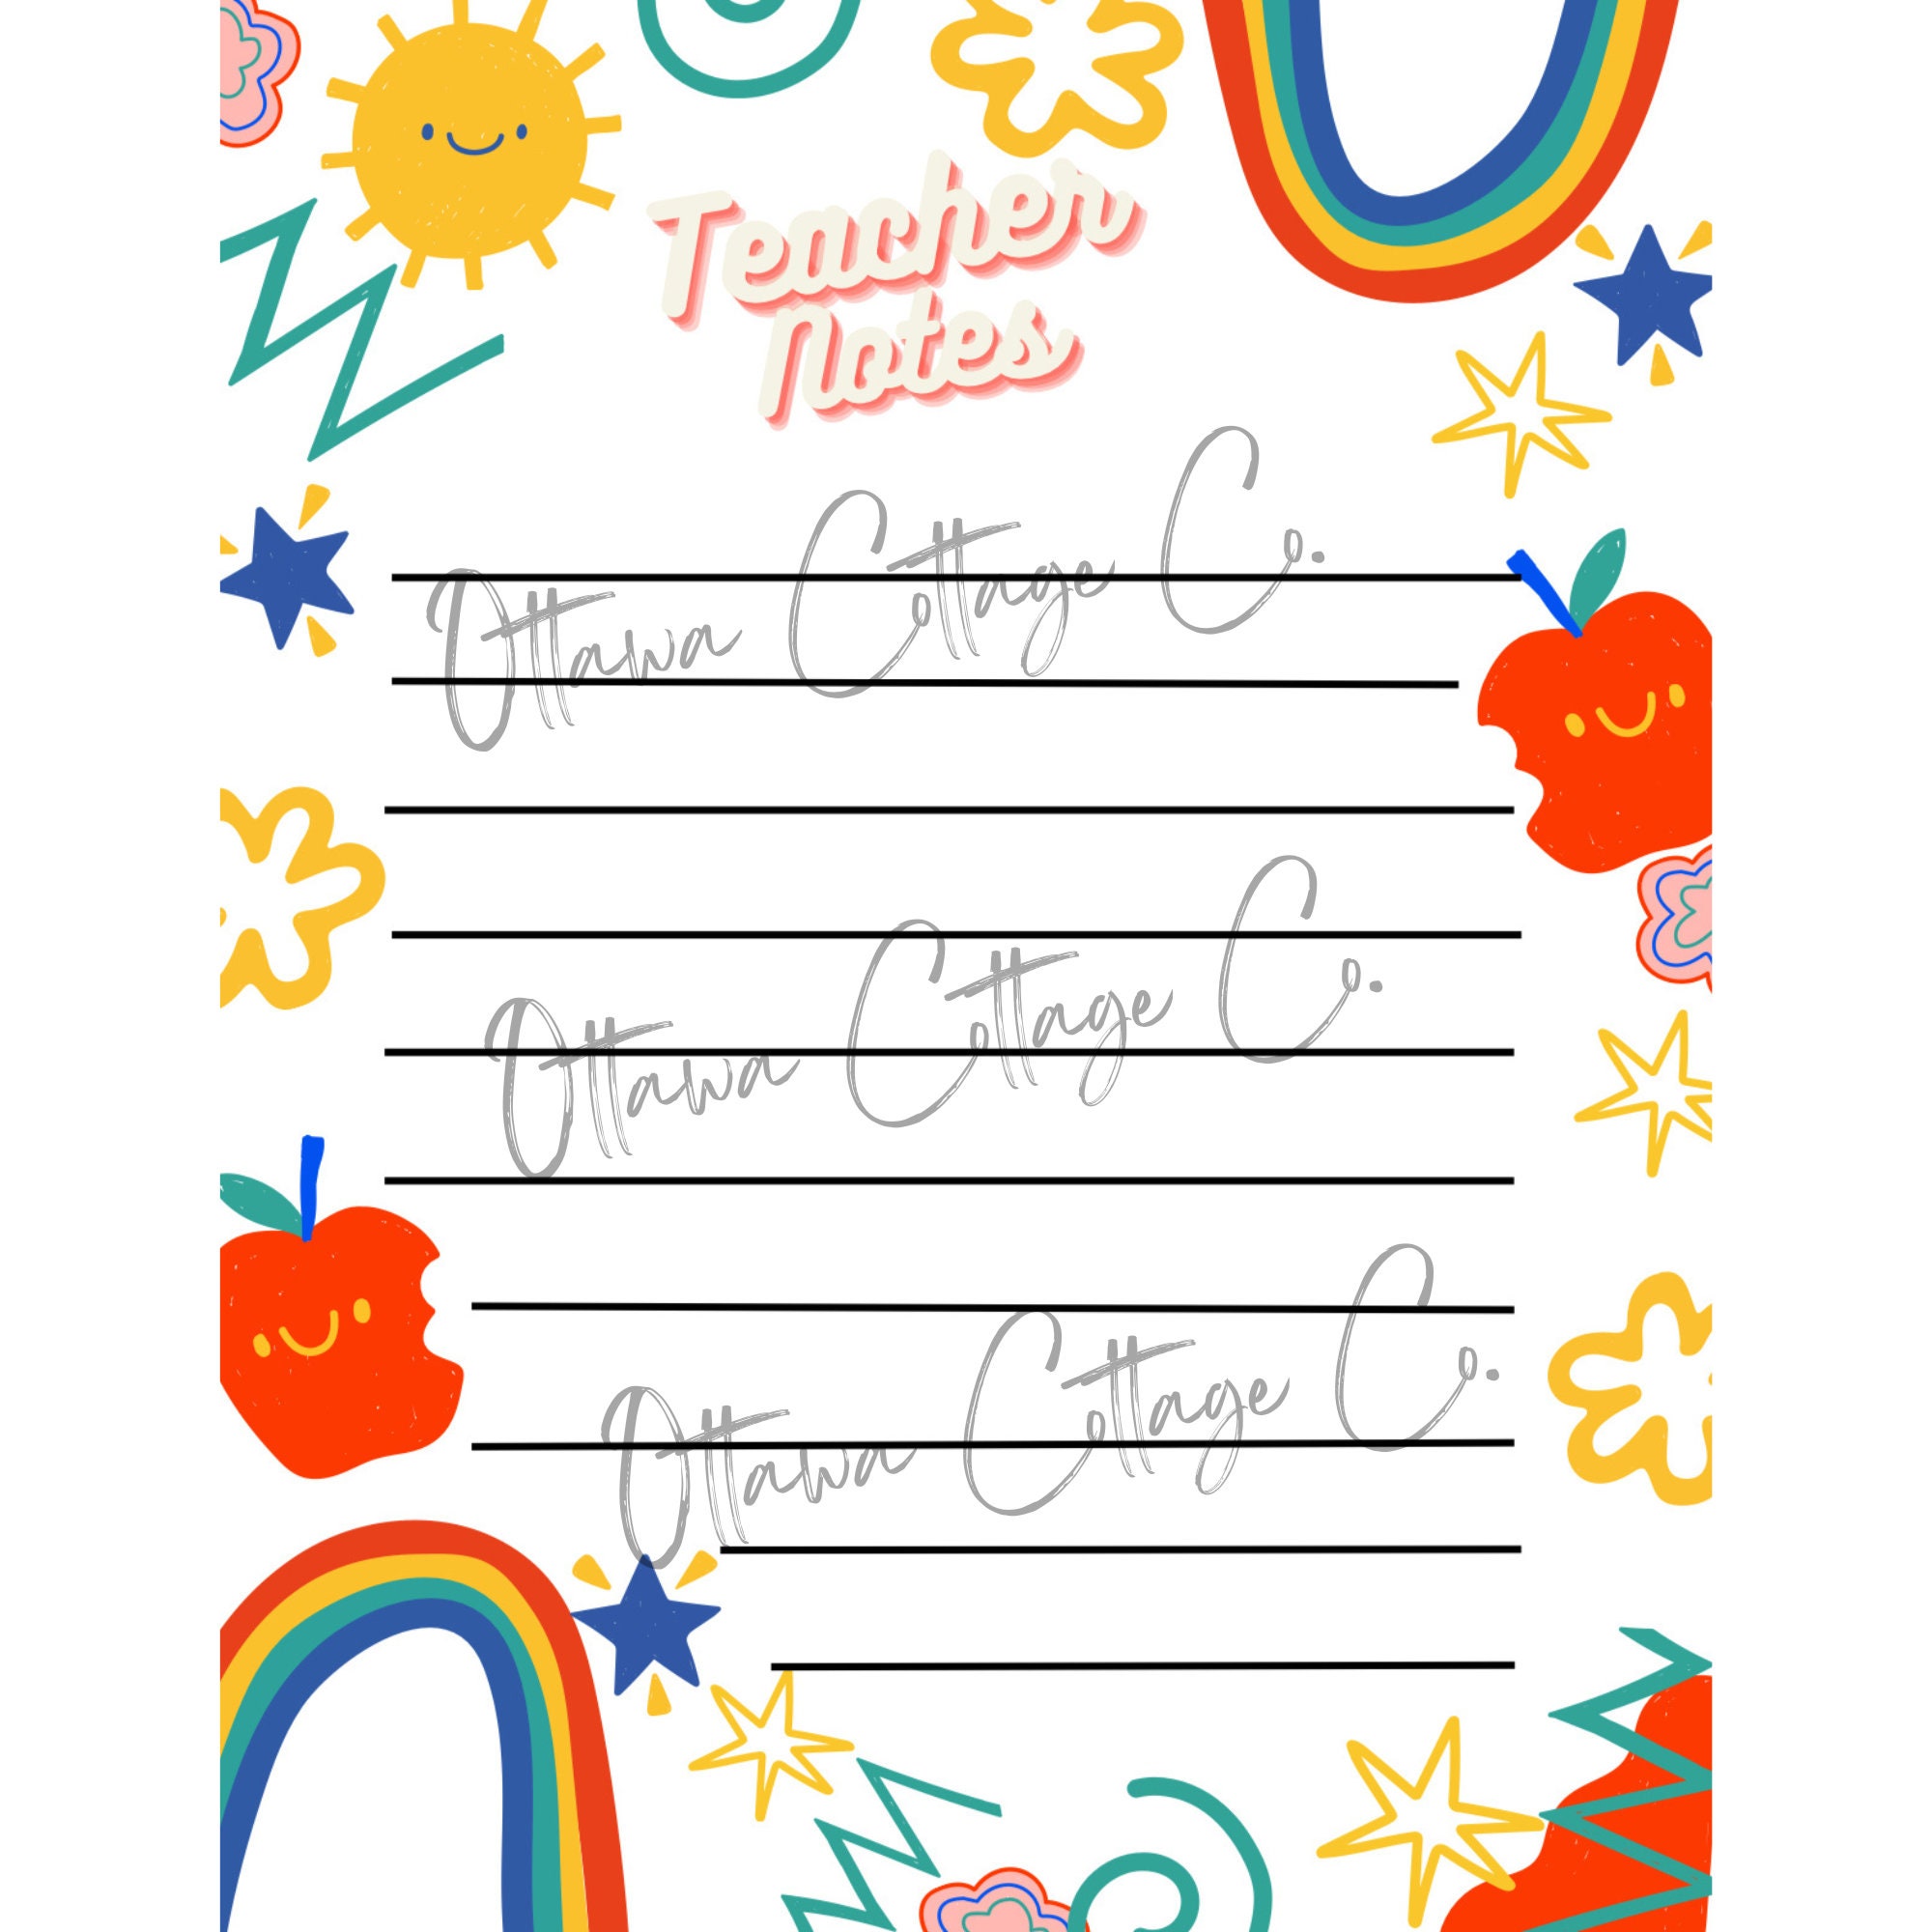 Teacher
Notes
Ottawa Cottage C.
Ottawa Cottage C.
Ottawa Cottage C.